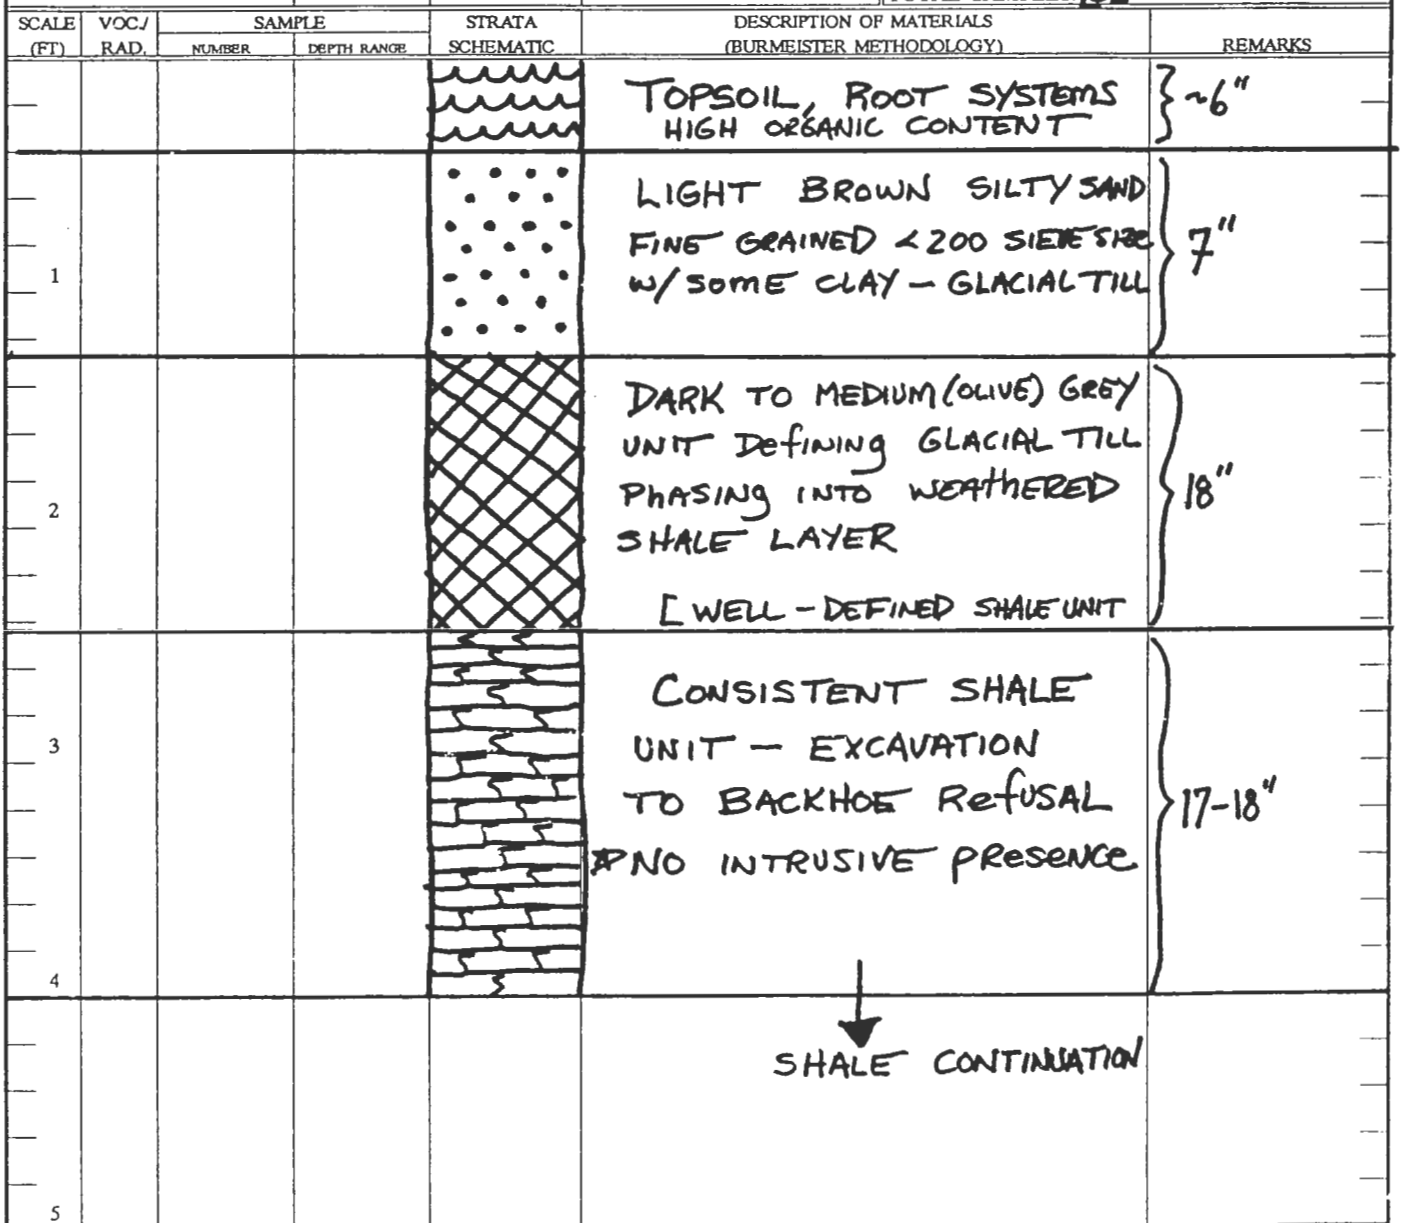 SCALE (FT)
VOC./ RAD.
SAMPLE
NUMBER
DEPTH RANGE
STRATA SCHEMATIC
DESCRIPTION OF MATERIALS
(BURMEISTER METHODOLOGY)
REMARKS
TOPSOIL, ROOT SYSTEMS
HIGH ORGANIC CONTENT
~6"
LIGHT BROWN SILTY SAND
FINE GRAINED <200 SIEVE SIZE
W/ SOME CLAY — GLACIAL TILL
7"
1
DARK TO MEDIUM (OLIVE) GREY
UNIT DEfINING GLACIAL TILL
PHASINg INTO WEAThERED
SHALE LAYER
[ WELL-DEFINED SHALE UNIT
18"
2
CONSISTENT SHALE
UNIT — EXCAVATION
TO BACKHOE RefUSAL
NO INTRUSIVE PResENCE
17-18"
3
4
SHALE CONTINUATION
5